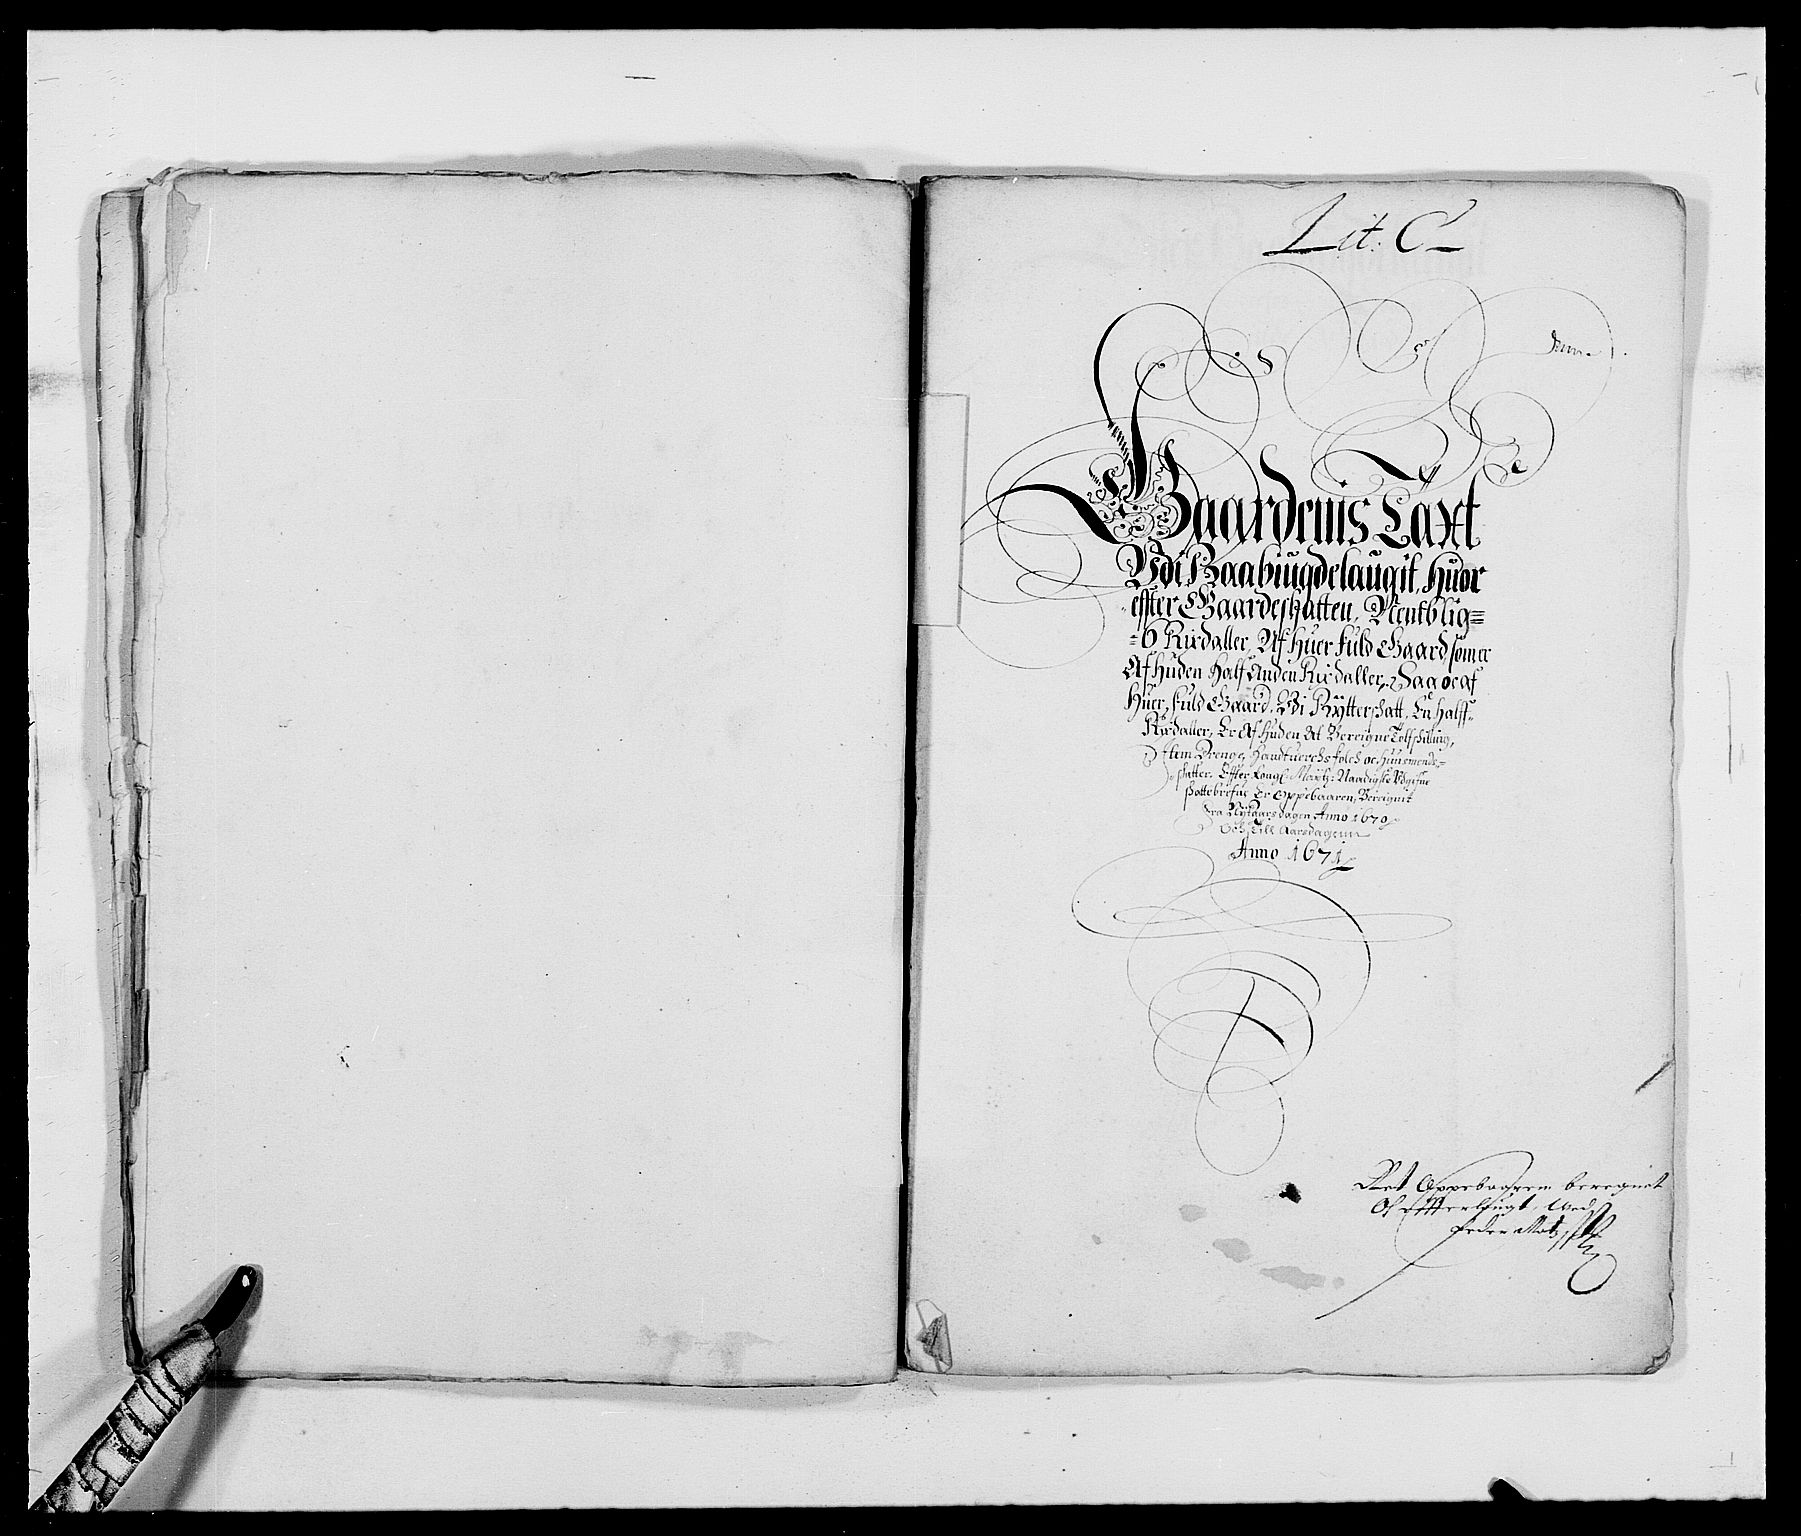 Lit. C
Gaardenis Taxt
Udi Baahiugdelaugit, Huor
effter Gaardeskatten, Nemblig=
=6 Rixdaller, Af Huer fuld Gaard, som er
Af Huden Half Anden Rixdaller, Saa oc af
Huer fuld Gaard, Udi Rÿtterskatt, En halff
Rixdaller, Er Af Huden At Bereigne Tolfskilling,
Item Drenge, Handtuerchsfolch oc Huusmends=
skatter. Efter Kongl: Maÿtz: Naadigste Udgifne
Skattebrefue Er Oppebaaren, Bereignit
fra Nÿtaarsdagen Anno 1670
Och Till Aarsdagenn
Anno 1671
Oppebaaren beregnet
Of Effterlugt, Wed
Peder